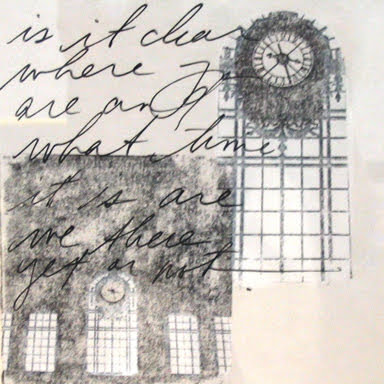 is it clear
where you
are and
what time
it is are
we there
yet or not